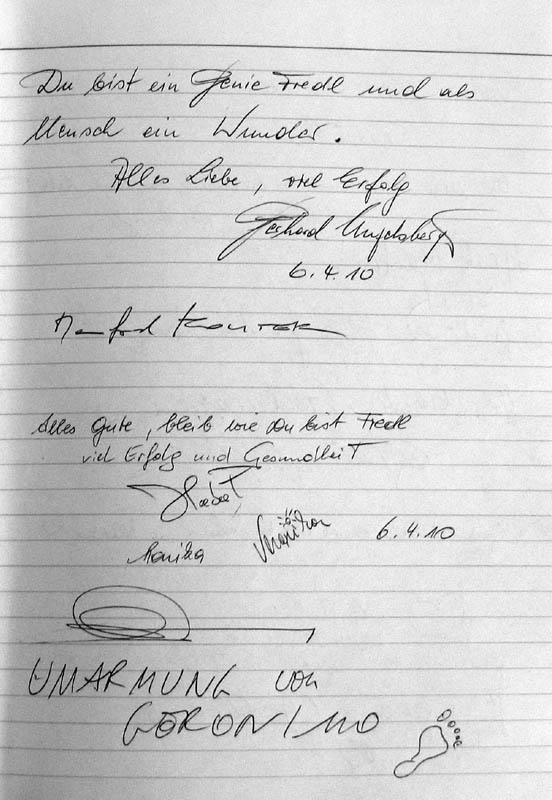 Du bist ein Genie Fredl und als
Mensch ein Wunder.
Alles Liebe, viel Erfolg
Gerhard
6.4.10
Manfred
Alles Gute, bleib wie du bist Fredl
viel Erfolg und Gesundheit
Monika
6.4.10
UMARMUNG von
GERONIMO